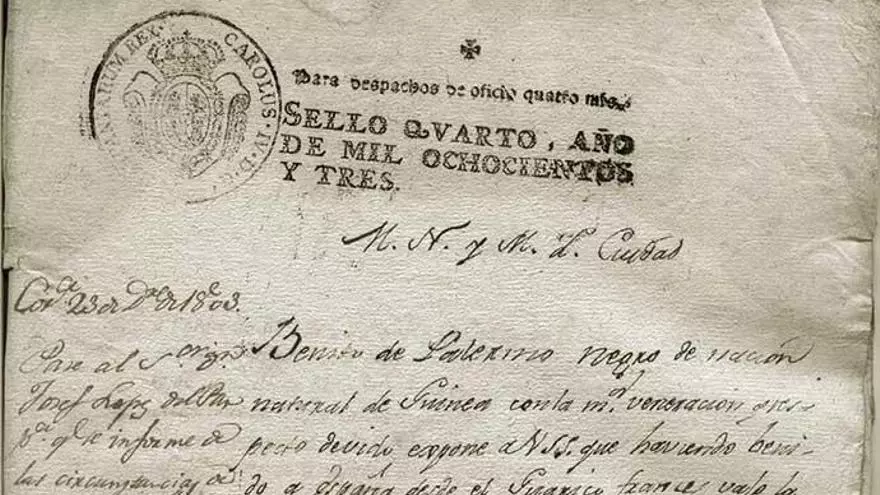 CAROLUS · IV · D · G · HISPANIARUM REX ·
Para despachos de oficio quatro mrs.
SELLO QVARTO, AÑO
DE MIL OCHOCIENTOS
Y TRES.
M. N. y M. L. Ciudad
Cord.ª 23 de D.re de 1803.
Pase al S.or
Josef Lopez del
p.ª q.e informe de
las circunstancias
Benito de Palermo negro de nacion
natural de Guinea con la m.or veneracion y res-
pecto devido expone a VSS. que haviendo beni-
do a España desde el Guarico frances